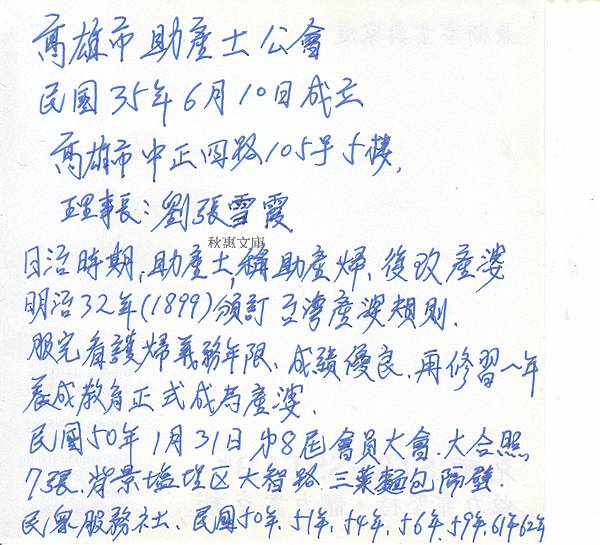 高雄市助產士公會
民國35年6月10日成立
高雄市中正四路105号5樓,
理事長:劉張雪霞
秋惠文庫
日治時期,助產士,稱助產婦、後改產婆
明治32年(1899)頒訂台灣產婆規則.
服完看護婦義務年限、成績優良.再修習一年
養成教育正式成為產婆.
民國50年1月31日第8屆會員大會.大合照,
7張.背景塩埕区大智路.三葉麵包隔壁.
民眾服務社、民國50年、51年、54年、56年、59年、61年62年